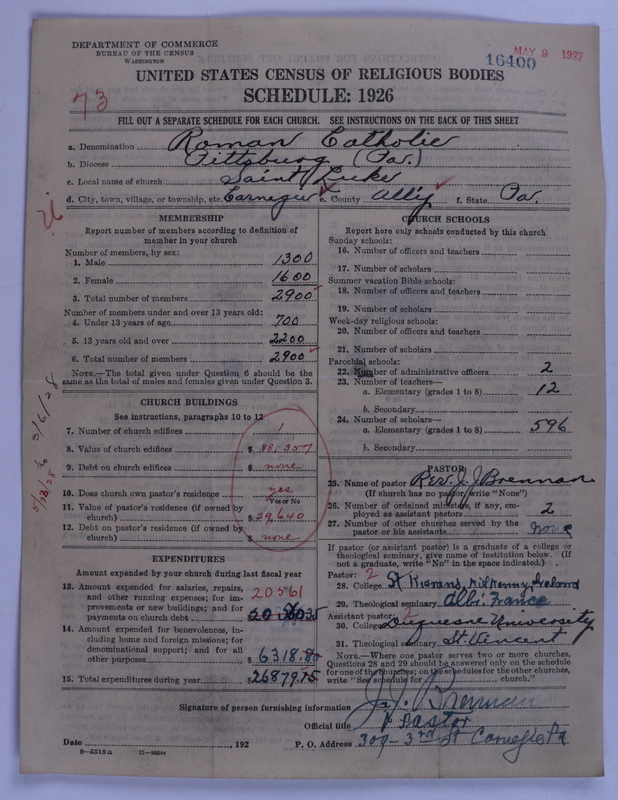 DEPARTMENT OF COMMERCE
BUREAU OF THE CENSUS
WASHINGTON
16400
MAY 9 1927
UNITED STATES CENSUS OF RELIGIOUS BODIES
SCHEDULE: 1926
73
FILL OUT A SEPARATE SCHEDULE FOR EACH CHURCH. SEE INSTRUCTIONS ON THE BACK OF THIS SHEET
a. Denomination Roman Catholic
b. Diocese Pittsburg (Pa.)
c. Local name of church Saint Luke
d. City, town, village, or township, etc. Carnegie e. County Alleg f. State Pa.
MEMBERSHIP
Report number of members according to definition of
member in your church
Number of members, by sex:
1. Male 1300
2. Female 1600
3. Total number of members 2900
Number of members under and over 13 years old:
4. Under 13 years of age 700
5. 13 years old and over 2200
6. Total number of members 2900
NOTE.—The total given under Question 6 should be the
same as the total of males and females given under Question 3.
CHURCH BUILDINGS
See instructions, paragraphs 10 to 12
7. Number of church edifices 1
8. Value of church edifices $ 88,357
9. Debt on church edifices $ none
10. Does church own pastor's residence yes
Yes or No
11. Value of pastor's residence (if owned by
church) $ 29,640
12. Debt on pastor's residence (if owned by
church) $ none
3/6/28
EXPENDITURES
Amount expended by your church during last fiscal year
13. Amount expended for salaries, repairs,
and other running expenses; for im-
provements or new buildings; and for
payments on church debt 20561
14. Amount expended for benevolences, in-
cluding home and foreign missions; for
denominational support; and for all
other purposes $ 6318.80
15. Total expenditures during year $ 26879.15
CHURCH SCHOOLS
Report here only schools conducted by this church
Sunday schools:
16. Number of officers and teachers
17. Number of scholars
Summer vacation Bible schools:
18. Number of officers and teachers
19. Number of scholars
Week-day religious schools:
20. Number of officers and teachers
21. Number of scholars
Parochial schools:
22. Number of administrative officers 2
23. Number of teachers—
a. Elementary (grades 1 to 8) 12
b. Secondary
24. Number of scholars—
a. Elementary (grades 1 to 8) 596
b. Secondary
PASTOR
25. Name of pastor Rev. J. J. Brennan
(If church has no pastor, write "None")
26. Number of ordained ministers, if any, em-
ployed as assistant pastors 2
27. Number of other churches served by the
pastor or his assistants none
If pastor (or assistant pastor) is a graduate of a college or
theological seminary, give name of institution below. (If
not a graduate, write "No" in the space indicated.)
Pastor: 2
28. College St Kierans, Kilkenny, Ireland
29. Theological seminary Albi, France
Assistant pastor: 2
30. College Duquesne University
31. Theological seminary St Vincent
NOTE.—Where one pastor serves two or more churches,
Questions 28 and 29 should be answered only on the schedule
for one of the churches; on the schedules for the other churches,
write "See schedule for church."
Signature of person furnishing information J. J. Brennan
Official title Pastor
Date , 192 P. O. Address 309 - 3rd St Carnegie Pa
8-5318a